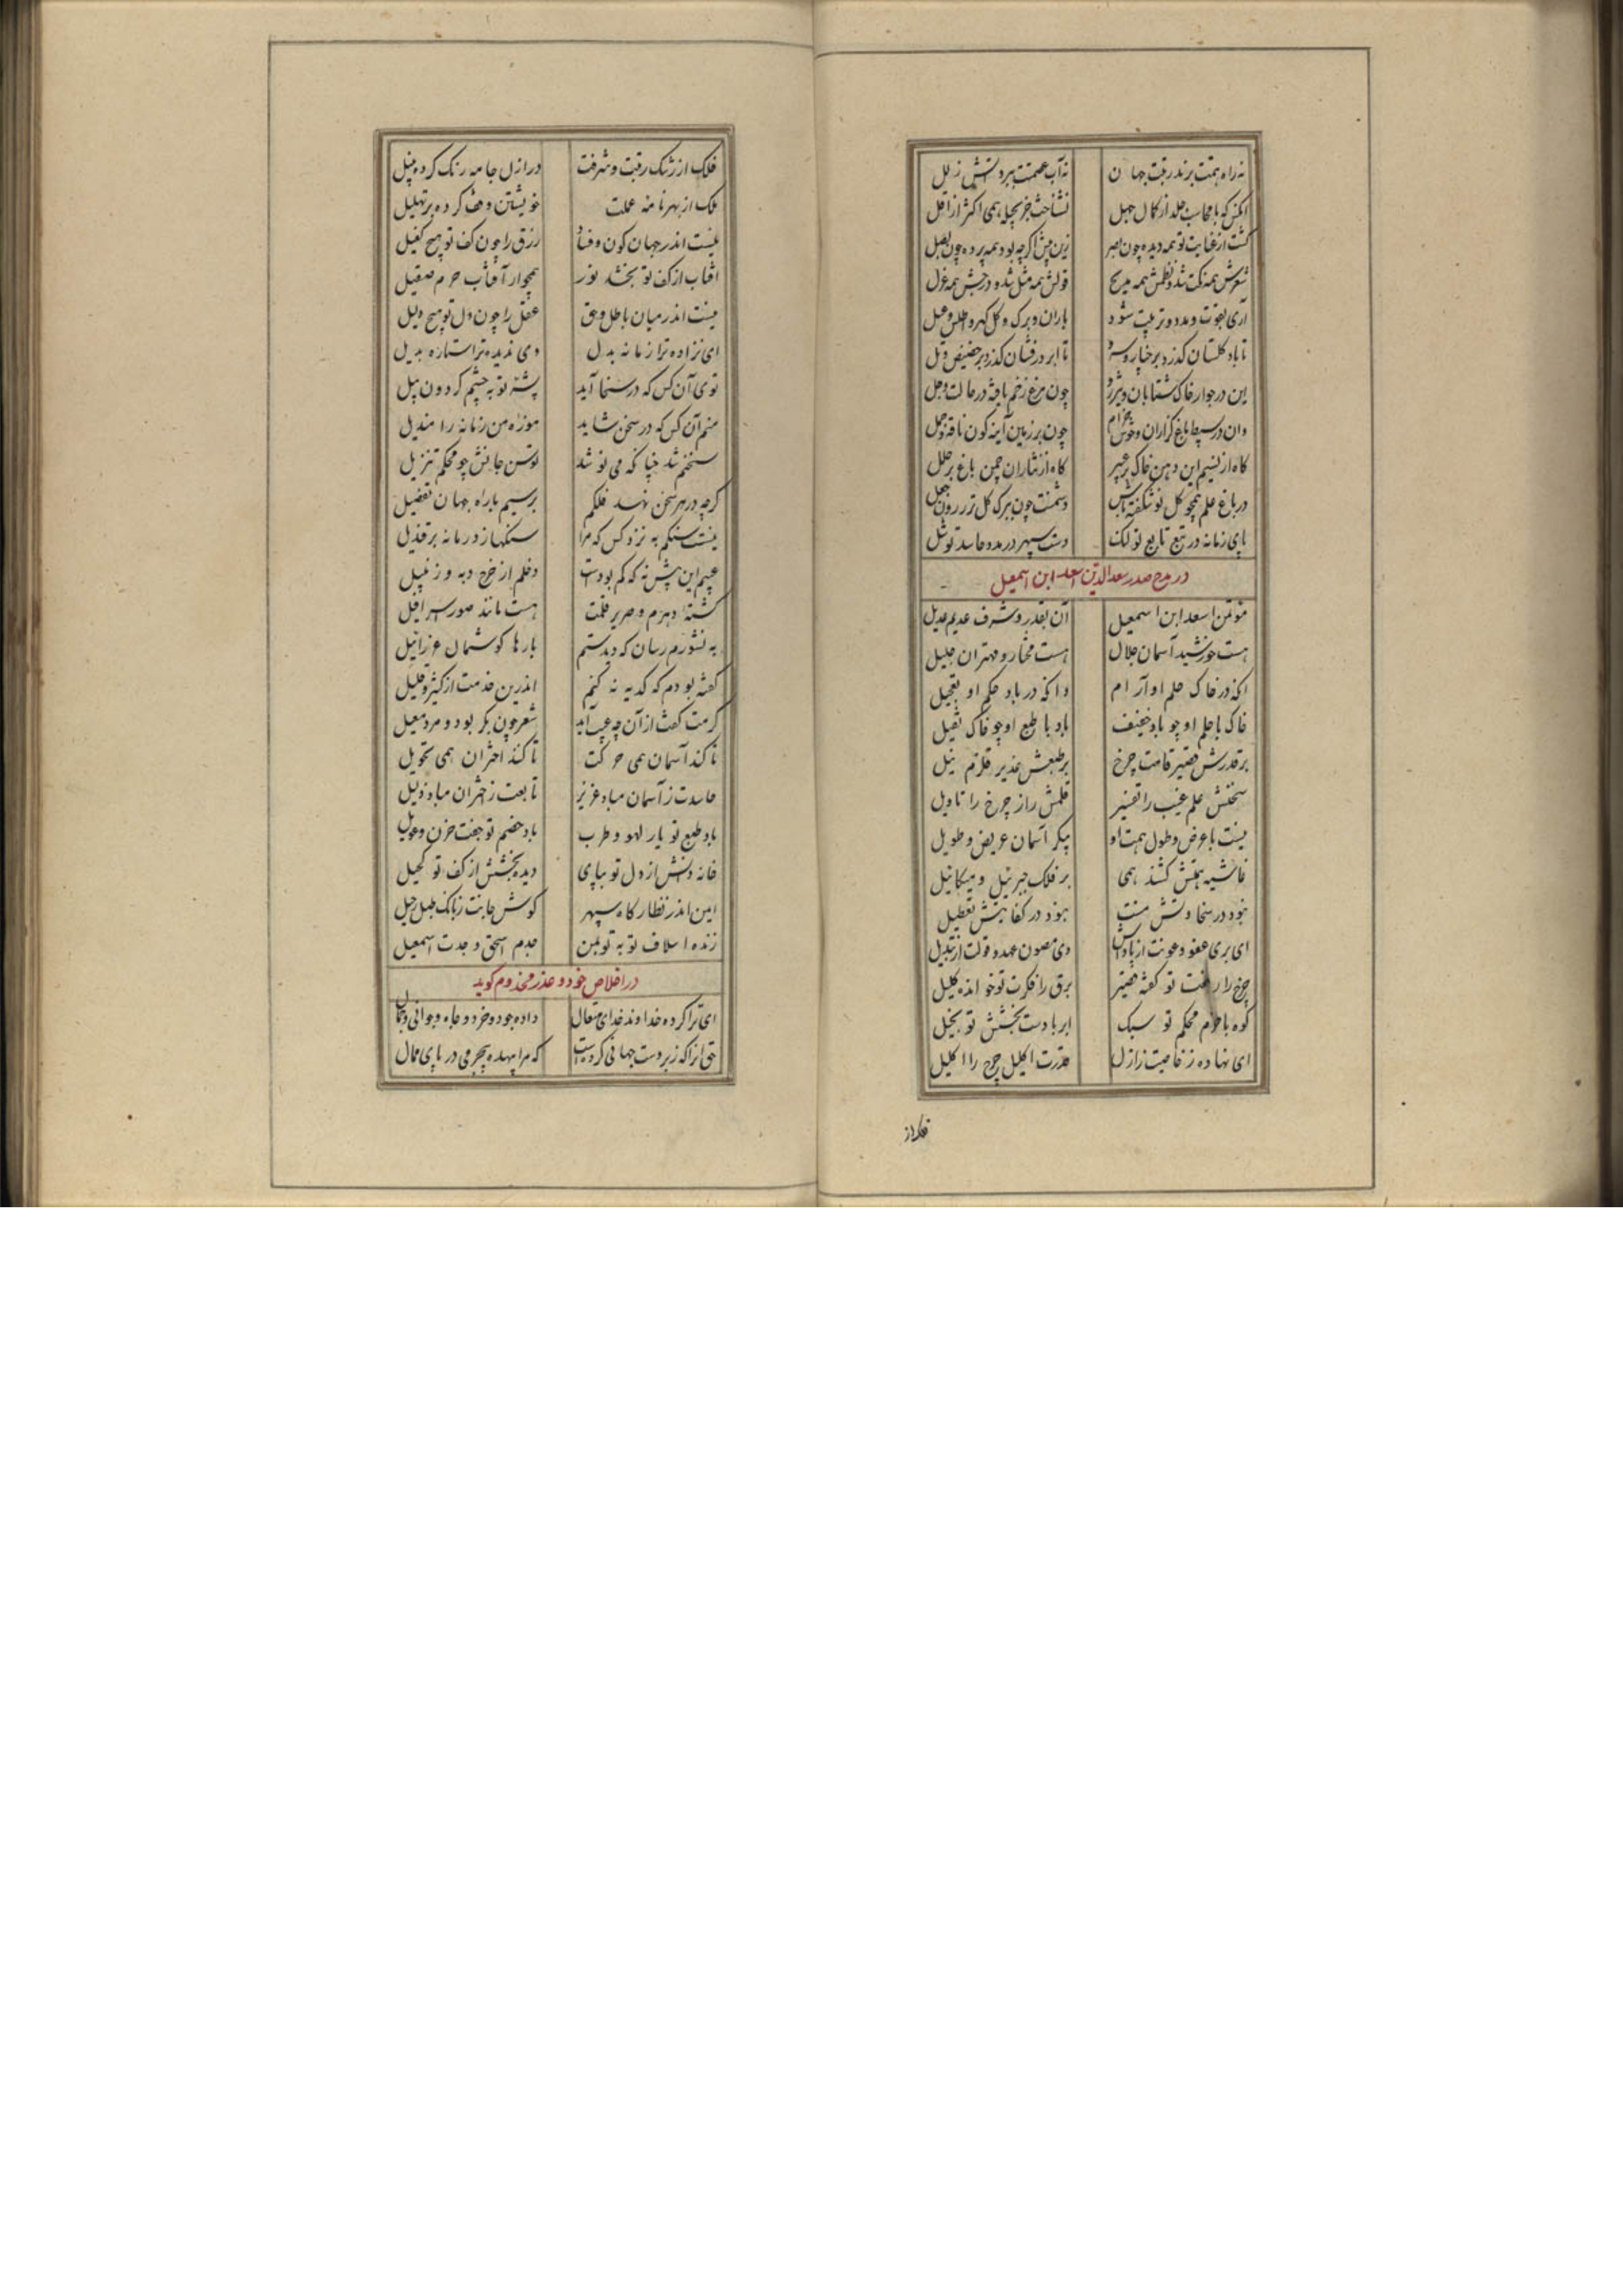 نه راه همتت بزند رتبت جهان نه آب عصمتت ببرد آتش زلل
آنکس که با محاسب جلد از کمال جهل نشناخت جز بحیله همی اکثر از اقل
گشت از عنایت تو همه دیده چون بصر زین پیش اگر چه بود همه پرده چون بصل
شعرش همه نکت شد و نظمش همه مدیح قولش همه مثل شد و درجش همه غزل
آری بقوت و مدد و تربیت شود باران و برگ و گل گهر و اطلس و عسل
تا باد گلستان گذرد بر خیار و تا ابر درفشان گذرد بر حضیض و تل
این در جوار خاک شتابان و چون مرغ زخم یافته در حالت وجل
وان در بسیط باغ گرازان و خوش خرام چون بر زمین آینه گون ناقه و جمل
گاه از نسیم این دهن خاک پر عبیر گاه از نثار ان چمن باغ پر حلل
در باغ علم همچو گل نو شکفته باش دشمنت چون ببرک گل تر درون جعل
پای زمانه در تبع تابع تو لنگ دست سپهر در مدد حاسد تو شل
در مدح صدر سعدالدین اسعد ابن اسمعیل
مؤتمن اسعد ابن اسمعیل آن بقدر و شرف عدیم عدیل
هست خورشید آسمان جلال هست مختار و مهتران جلیل
انکه در خاک حلم او آرام وانکه در باد حکم او تعجیل
خاک با حلم او چو باد خفیف باد با طبع او چو خاک ثقیل
بر قدرش قصیر قامت چرخ بر طبعش غدیر قلزم نیل
سخنش علم غیب را تفسیر قلمش راز چرخ را تاویل
نیست با عرض و طول همت او پیکر آسمان عریض و طویل
غاشیه همتش کشند همی بر فلک جبرئیل و میکائیل
نبود در سخاوتش منت نبود در کفایتش تعطیل
ای بری عفو و عونت از پاداش وی مصون عهد و قولت از تبدیل
چرخ را رفعت تو گفته قصیر برق را فکرت تو خوانده کلیل
کوه با حزم محکم تو سبک ابر با دست بخشش تو بخیل
ای نهاده ز خاصیت ز ازل قدرت اکلیل چرخ را اکلیل
فلک از
فلک از رشک رتبت و شرفت در ازل جامه رنگ کرده بنیل
ملک از بهر نامه عملت خویشتن وقف کرده بر تهلیل
نیست اندر جهان کون و فساد رزق را چون کف تو هیچ کفیل
آفتاب از کف تو بخشد نور همچو از آفتاب جرم صقیل
نیست اندر میان باطل و حق عقل را چون دل تو هیچ دلیل
ای نزاده ترا زمانه بدل وی ندیده ترا ستاره بدیل
توی آن کس که در سخا آید پشه تو به چشم گردون پیل
منم آن کس که در سخن شاید موزه من زمانه را مندیل
سخنم شد چنانکه می نوشد توسن جانش چو محکم تنزیل
گرچه در هر سخن نهد فلکم بر سیم پاره جهان تفضیل
نیست سنگم به نزد کس که مرا سنگها زد زمانه بر قندیل
عیبم این بیش نه که کم بودست دخلم از خرج دبه و زنبیل
کشته دهرم و صریر قلمت هست مانند صور اسرافیل
به نشورم رسان که دیدستم بارها گوشمال عزرائیل
گفته بودم که گدیه نه کنم اندرین خدمت از کثیر و قلیل
کرمت گفت از آن چه عیب آید شعر چون بکر بود و مرد معیل
تا کند آسمان همی حرکت تا کند اختران همی تحویل
حاسدت ز آسمان مباد عزیز تابعت ز اختران مباد ذلیل
باد طبع تو یار لهو و طرب باد خصم تو جفت حزن و عویل
خانه دانش از دل تو بپای دیده بخشش از کف تو کحیل
ایمن اندر نظارگاه سپهر گوش جانت ز بانگ طبل رحیل
زنده اسلاف تو به تو چو بمن جدم اسحق و جدت اسمعیل
در اخلاص خود و عذر مخدوم گوید
ای ترا کرده خداوند خدای متعال داده جود و خرد و جاه و جوانی و جمال
حق آنرا که زبر دست جهانی کردست که مرا بیهده بیجرمی در پای ممال